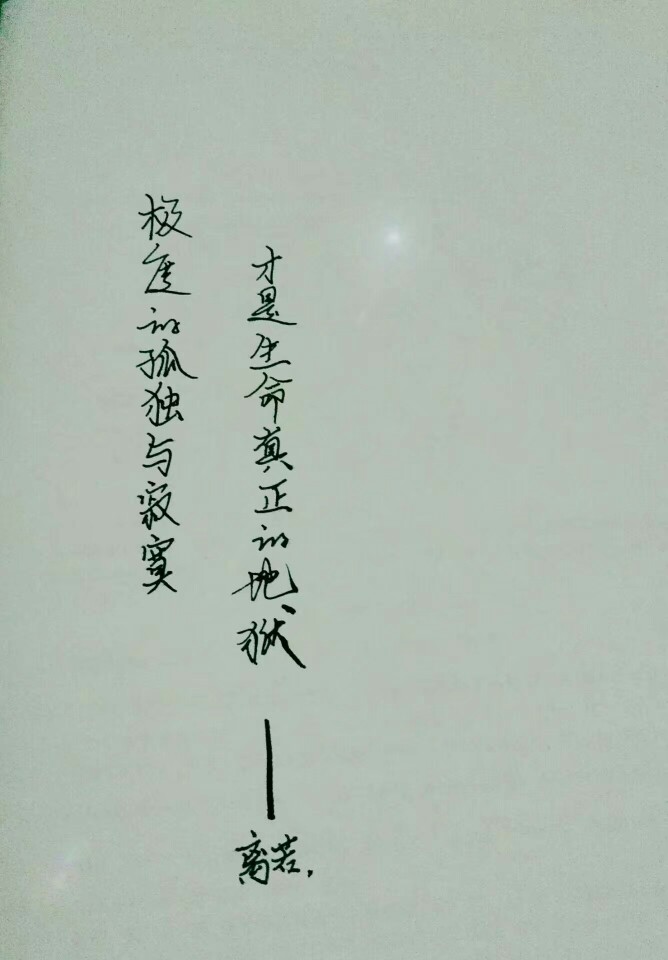 极度的孤独与寂寞
才是生命真正的地狱
——离若.